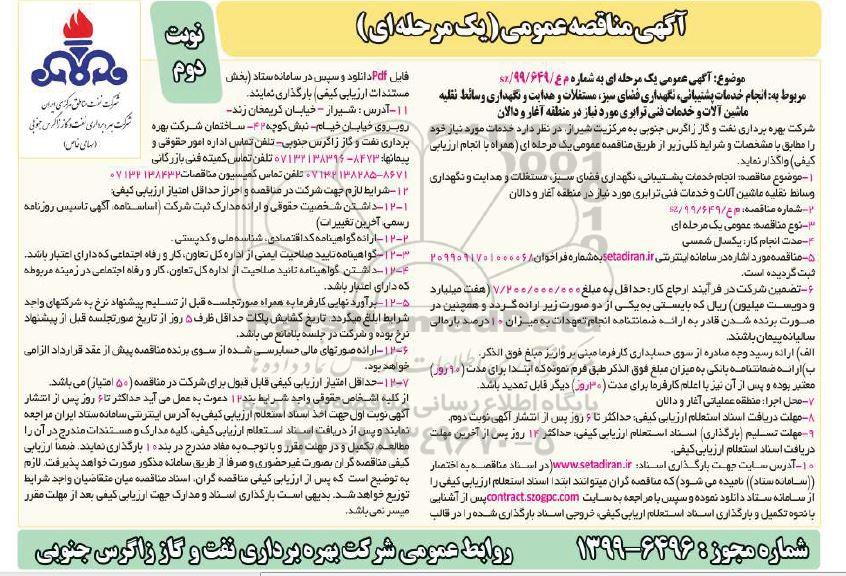 آگهی مناقصه عمومی (یک مرحله ای)
نوبت
دوم
شرکت نفت مناطق مرکزی ایران
شرکت بهره برداری نفت و گاز زاگرس جنوبی
(سهامی خاص)
موضوع: آگهی عمومی یک مرحله ای به شماره م ع/۹۹/۶۴۹/sz
مربوط به: انجام خدمات پشتیبانی، نگهداری فضای سبز، مستغلات و هدایت و نگهداری وسائط نقلیه
ماشین آلات و خدمات فنی ترابری مورد نیاز در منطقه آغار و دالان
شرکت بهره برداری نفت و گاز زاگرس جنوبی به مرکزیت شیراز، در نظر دارد خدمات مورد نیاز خود
را مطابق با مشخصات و شرایط کلی زیر از طریق مناقصه عمومی یک مرحله ای (همراه با انجام ارزیابی
کیفی) واگذار نماید.
۱-موضوع مناقصه: انجام خدمات پشتیبانی، نگهداری فضای سبز، مستغلات و هدایت و نگهداری
وسائط نقلیه ماشین آلات و خدمات فنی ترابری مورد نیاز در منطقه آغار و دالان
۲-شماره مناقصه: م ع/۹۹/۶۴۹/sz
۳-نوع مناقصه: عمومی یک مرحله ای
۴-مدت انجام کار: یکسال شمسی
۵-مناقصه مورد اشاره در سامانه اینترنتی setadiran.ir به شماره فراخوان ۲۰۹۹۰۹۱۷۰۱۰۰۰۰۶۸
ثبت گردیده است.
۶-تضمین شرکت در فرآیند ارجاع کار: حداقل به مبلغ ۷/۲۰۰/۰۰۰/۰۰۰ (هفت میلیارد
و دویست میلیون) ریال که بایستی به یکی از دو صورت زیر ارائه گردد و همچنین در
صورت برنده شدن قادر به ارائه ضمانتنامه انجام تعهدات به میزان ۱۰ درصد بار مالی
سالیانه پیمان باشند.
الف) ارائه رسید وجه صادره از سوی حسابداری کارفرما مبنی بر واریز مبلغ فوق الذکر.
ب) ارائه ضمانتنامه بانکی به میزان مبلغ فوق الذکر طبق فرم نمونه که ابتدا برای مدت (۹۰ روز)
معتبر بوده و پس از آن نیز با اعلام کارفرما برای مدت (۳۰ روز) دیگر قابل تمدید باشد.
۷-محل اجرا: منطقه عملیاتی آغار و دالان
۸-مهلت دریافت اسناد استعلام ارزیابی کیفی: حداکثر تا ۶ روز پس از انتشار آگهی نوبت دوم.
۹-مهلت تسلیم (بارگذاری) اسناد استعلام ارزیابی کیفی، حداکثر ۱۴ روز پس از آخرین مهلت
دریافت اسناد استعلام ارزیابی کیفی.
۱۰-آدرس سایت جهت بارگذاری اسناد: www.setadiran.ir (در اسناد مناقصه به اختصار
((سامانه ستاد)) نامیده می شود) که مناقصه گران میتوانند ابتدا اسناد استعلام ارزیابی کیفی را
از سامانه ستاد دانلود نموده و سپس با مراجعه به سایت contract.szogpc.com پس از آشنایی
با نحوه تکمیل و بارگذاری اسناد استعلام ارزیابی کیفی، خروجی اسناد بارگذاری شده را در قالب
فایل Pdf دانلود و سپس در سامانه ستاد (بخش
مستندات ارزیابی کیفی) بارگذاری نمایند.
۱۱-آدرس: شیراز - خیابان کریمخان زند-
روبروی خیابان خیام- نبش کوچه ۴۲- ساختمان شرکت بهره
برداری نفت و گاز زاگرس جنوبی- تلفن تماس اداره امور حقوقی و
پیمانها: ۸۴۷۳-۰۷۱۳۲۱۳۸۳۹۶ تلفن تماس کمیته فنی بازرگانی
۸۶۷۱-۰۷۱۳۲۱۳۸۲۸۵ تلفن تماس کمیسیون مناقصات ۰۷۱۳۲۱۳۸۴۳۲
۱۲-شرایط لازم جهت شرکت در مناقصه و احراز حداقل امتیاز ارزیابی کیفی:
۱۲-۱-داشتن شخصیت حقوقی و ارائه مدارک ثبت شرکت (اساسنامه، آگهی تاسیس روزنامه
رسمی، آخرین تغییرات)
۱۲-۲-ارائه گواهینامه کد اقتصادی، شناسه ملی و کد پستی.
۱۲-۳-گواهینامه تایید صلاحیت ایمنی از اداره کل تعاون، کار و رفاه اجتماعی که دارای اعتبار باشد.
۱۲-۴-داشتن گواهینامه تائید صلاحیت از اداره کل تعاون، کار و رفاه اجتماعی در زمینه مربوطه
که دارای اعتبار باشد.
۱۲-۵-برآورد نهایی کارفرما به همراه صورتجلسه قبل از تسلیم پیشنهاد نرخ به شرکتهای واجد
شرایط ابلاغ میگردد. تاریخ گشایش پاکات حداقل ظرف ۵ روز از تاریخ صورتجلسه قبل از پیشنهاد
نرخ بوده و شرکت در جلسه بلامانع می باشد.
۱۲-۶-ارائه صورتهای مالی حسابرسی شده از سوی برنده مناقصه پیش از عقد قرارداد الزامی
خواهد بود.
۱۲-۷-حداقل امتیاز ارزیابی کیفی قابل قبول برای شرکت در مناقصه (۵۰ امتیاز) می باشد.
از کلیه اشخاص حقوقی واجد شرایط بند ۱۲ دعوت به عمل می آید حداکثر تا ۶ روز پس از انتشار
آگهی نوبت اول جهت اخذ اسناد استعلام ارزیابی کیفی به آدرس اینترنتی سامانه ستاد ایران مراجعه
نمایند و پس از دریافت اسناد استعلام ارزیابی کیفی، کلیه مدارک و مستندات مندرج در آن را
مطالعه، تکمیل و در مهلت مقرر و با توجه به مفاد مندرج در بند ۱۰ بارگذاری نمایند. ضمنا ارزیابی
کیفی مناقصه گران بصورت غیرحضوری و صرفاً از طریق سامانه مذکور صورت خواهد پذیرفت. لازم
به توضیح است که پس از ارزیابی کیفی مناقصه گران، اسناد مناقصه میان متقاضیان واجد شرایط
توزیع خواهد شد. بدیهی است بارگذاری اسناد و مدارک جهت ارزیابی کیفی بعد از مهلت مقرر
میسر نمی باشد.
شماره مجوز: ۶۴۹۶-۱۳۹۹
روابط عمومی شرکت بهره برداری نفت و گاز زاگرس جنوبی